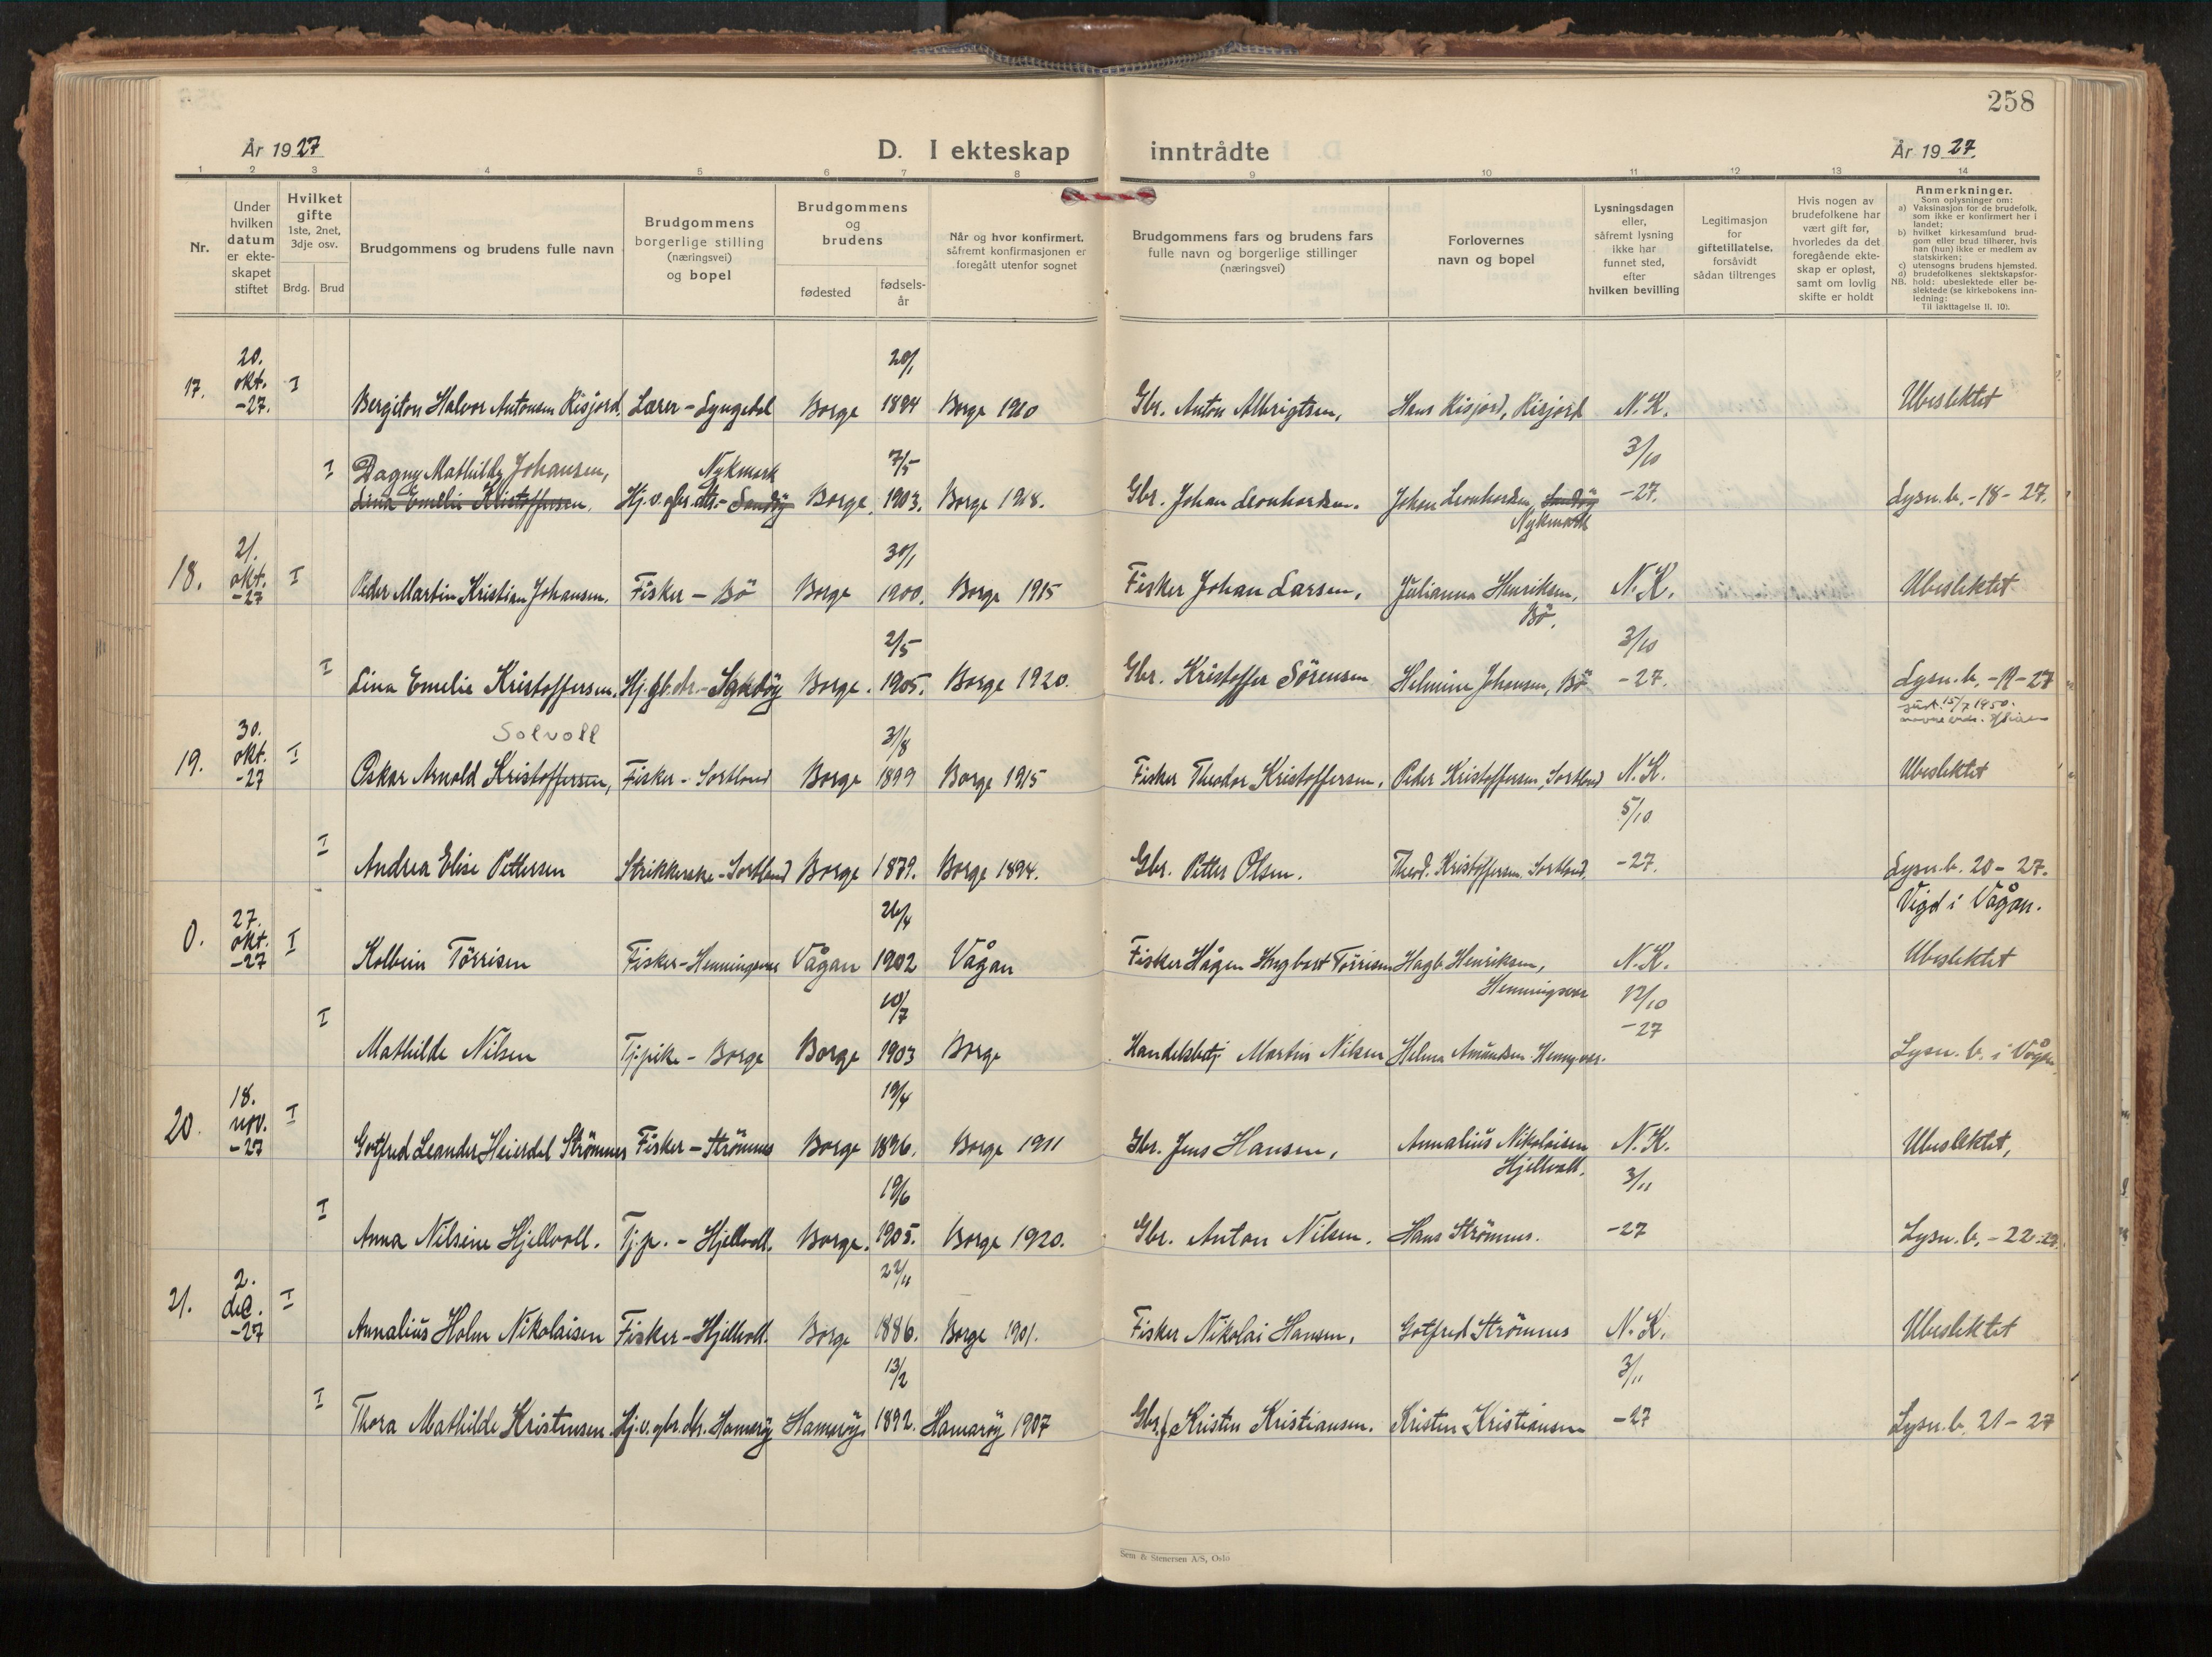 258
År 1927
D. I ekteskap inntrådte
År 1927.
1 2 3 4 5 6 7 8 9 10 11 12 13 14
Nr.
Under
hvilken
datum
er ekte-
skapet
stiftet
Hvilket
gifte
1ste, 2net,
3dje osv.
Brdg. Brud
Brudgommens og brudens fulle navn
Brudgommens
borgerlige stilling
(næringsvei)
og bopel
Brudgommens
og
brudens
fødested
fødsels-
år
Når og hvor konfirmert,
såfremt konfirmasjonen er
foregått utenfor sognet
Brudgommens fars og brudens fars
fulle navn og borgerlige stillinger
(næringsvei)
Forlovernes
navn og bopel
Lysningsdagen
eller,
såfremt lysning
ikke har
funnet sted,
efter
hvilken bevilling
Legitimasjon
for
giftetillatelse,
forsåvidt
sådan tiltrenges
Hvis nogen av
brudefolkene har
vært gift før,
hvorledes da det
foregående ekte-
skap er opløst,
samt om lovlig
skifte er holdt
Anmerkninger.
Som oplysninger om:
a) Vaksinasjon for de brudefolk,
som ikke er konfirmert her i
landet;
b) hvilket kirkesamfund brud-
gom eller brud tilhører, hvis
han (hun) ikke er medlem av
statskirken;
c) utensogns brudens hjemsted.
d) brudefolkenes slektskapsfor-
NB. hold: ubeslektede eller be-
slektede (se kirkebokens inn-
ledning:
Til iakttagelse II, 10).
17. 20. okt. -27. I Bergiton Halvor Antonsen Risjord, Lærer - Lyngedal Borge 20/1 1894 Borge 1910 Gbr. Anton Albrigtsen, Hans Risjord, Risjord N.K. Ubeslektet
I Dagny Mathilde Johansen, Nykmark 7/5 3/10
Lina Emelie Kristoffersen. Hj.v.gbr.dtr. - Sandøy Borge. 1903. Borge 1918. Gbr. Johan Leonhardsen. Johan Leonhardsen, Sandøy -27. Lysn.b. -18-27.
Nykmark
18. 21. okt. -27 I Peder Martin Kristian Johansen. Fisker - Bö Borge 30/1 1900. Borge 1915 Fisker Johan Larsen, Julianna Henriksen, N.K. Ubeslektet
Bö.
I Lina Emelie Kristoffersen. Hj. gb.dtr. - Sandöy Borge. 2/5 1905. Borge 1920. Gbr. Kristoffer Sörensen Helmine Johansen, Bö 3/10 -27. Lysn.b. -19-27
15/7 1950.
Solvoll
19. 30. okt. -27 I Oskar Arnold Kristoffersen, Fisker - Sortland Borge 3/8 1899 Borge 1915 Fisker Theodor Kristoffersen. Peder Kristoffersen, Sortland N.K. Ubeslektet
I Andrea Elise Pettersen Strikkerske - Sortland Borge 1879. Borge 1894. Gbr. Petter Olsen. Theod. Kristoffersen. Sortland. 5/10 -27. Lysn.b. 20-27.
Vigd i Vågan.
0. 27. okt. -27 I Kolbein Törrisen Fisker - Henningsvær Vågan 26/4 1902 Vågan Fisker Hågen Ingbart Törrisen Hagb. Henriksen, N.K. Ubeslektet
Henningsvær
I Mathilde Nilsen Tj.pike - Borge Borge 10/7 1903 Borge Handelsbetj Martin Nilsen Helma Amundsen Henn.vær. 12/10 -27 Lysn.b. i Vågan.
20. 18. nov. -27 I Gotfred Leander Heierdal Strömnes Fisker - Strömnes Borge 19/4 1896. Borge 1911 Gbr. Jens Hansen, Annalius Nikolaisen N.K. Ubeslektet,
Hjellvoll.
I Anna Nilsine Hjellvoll. Tj.p. - Hjellvoll. Borge. 19/6 1905. Borge 1920. Gbr. Anton Nilsen. Hans Strömnes. 3/11 -27 Lysn.b. -22-27.
21. 2. dec. -27 I Annalius Holm Nikolaisen Fisker - Hjellvoll. Borge 22/11 1886. Borge 1901. Fisker Nikolai Hansen, Gotfred Strömnes N.K. Ubeslektet
I Thora Mathilde Kristensen. Hj.v.gbr.dtr. Hamaröy Hamaröy 13/2 1892. Hamaröy 1907 Gbr. Kristen Kristiansen. Kristen Kristiansen 3/11 -27 Lysn.b. 21-27
Sem & Stenersen A/S, Oslo